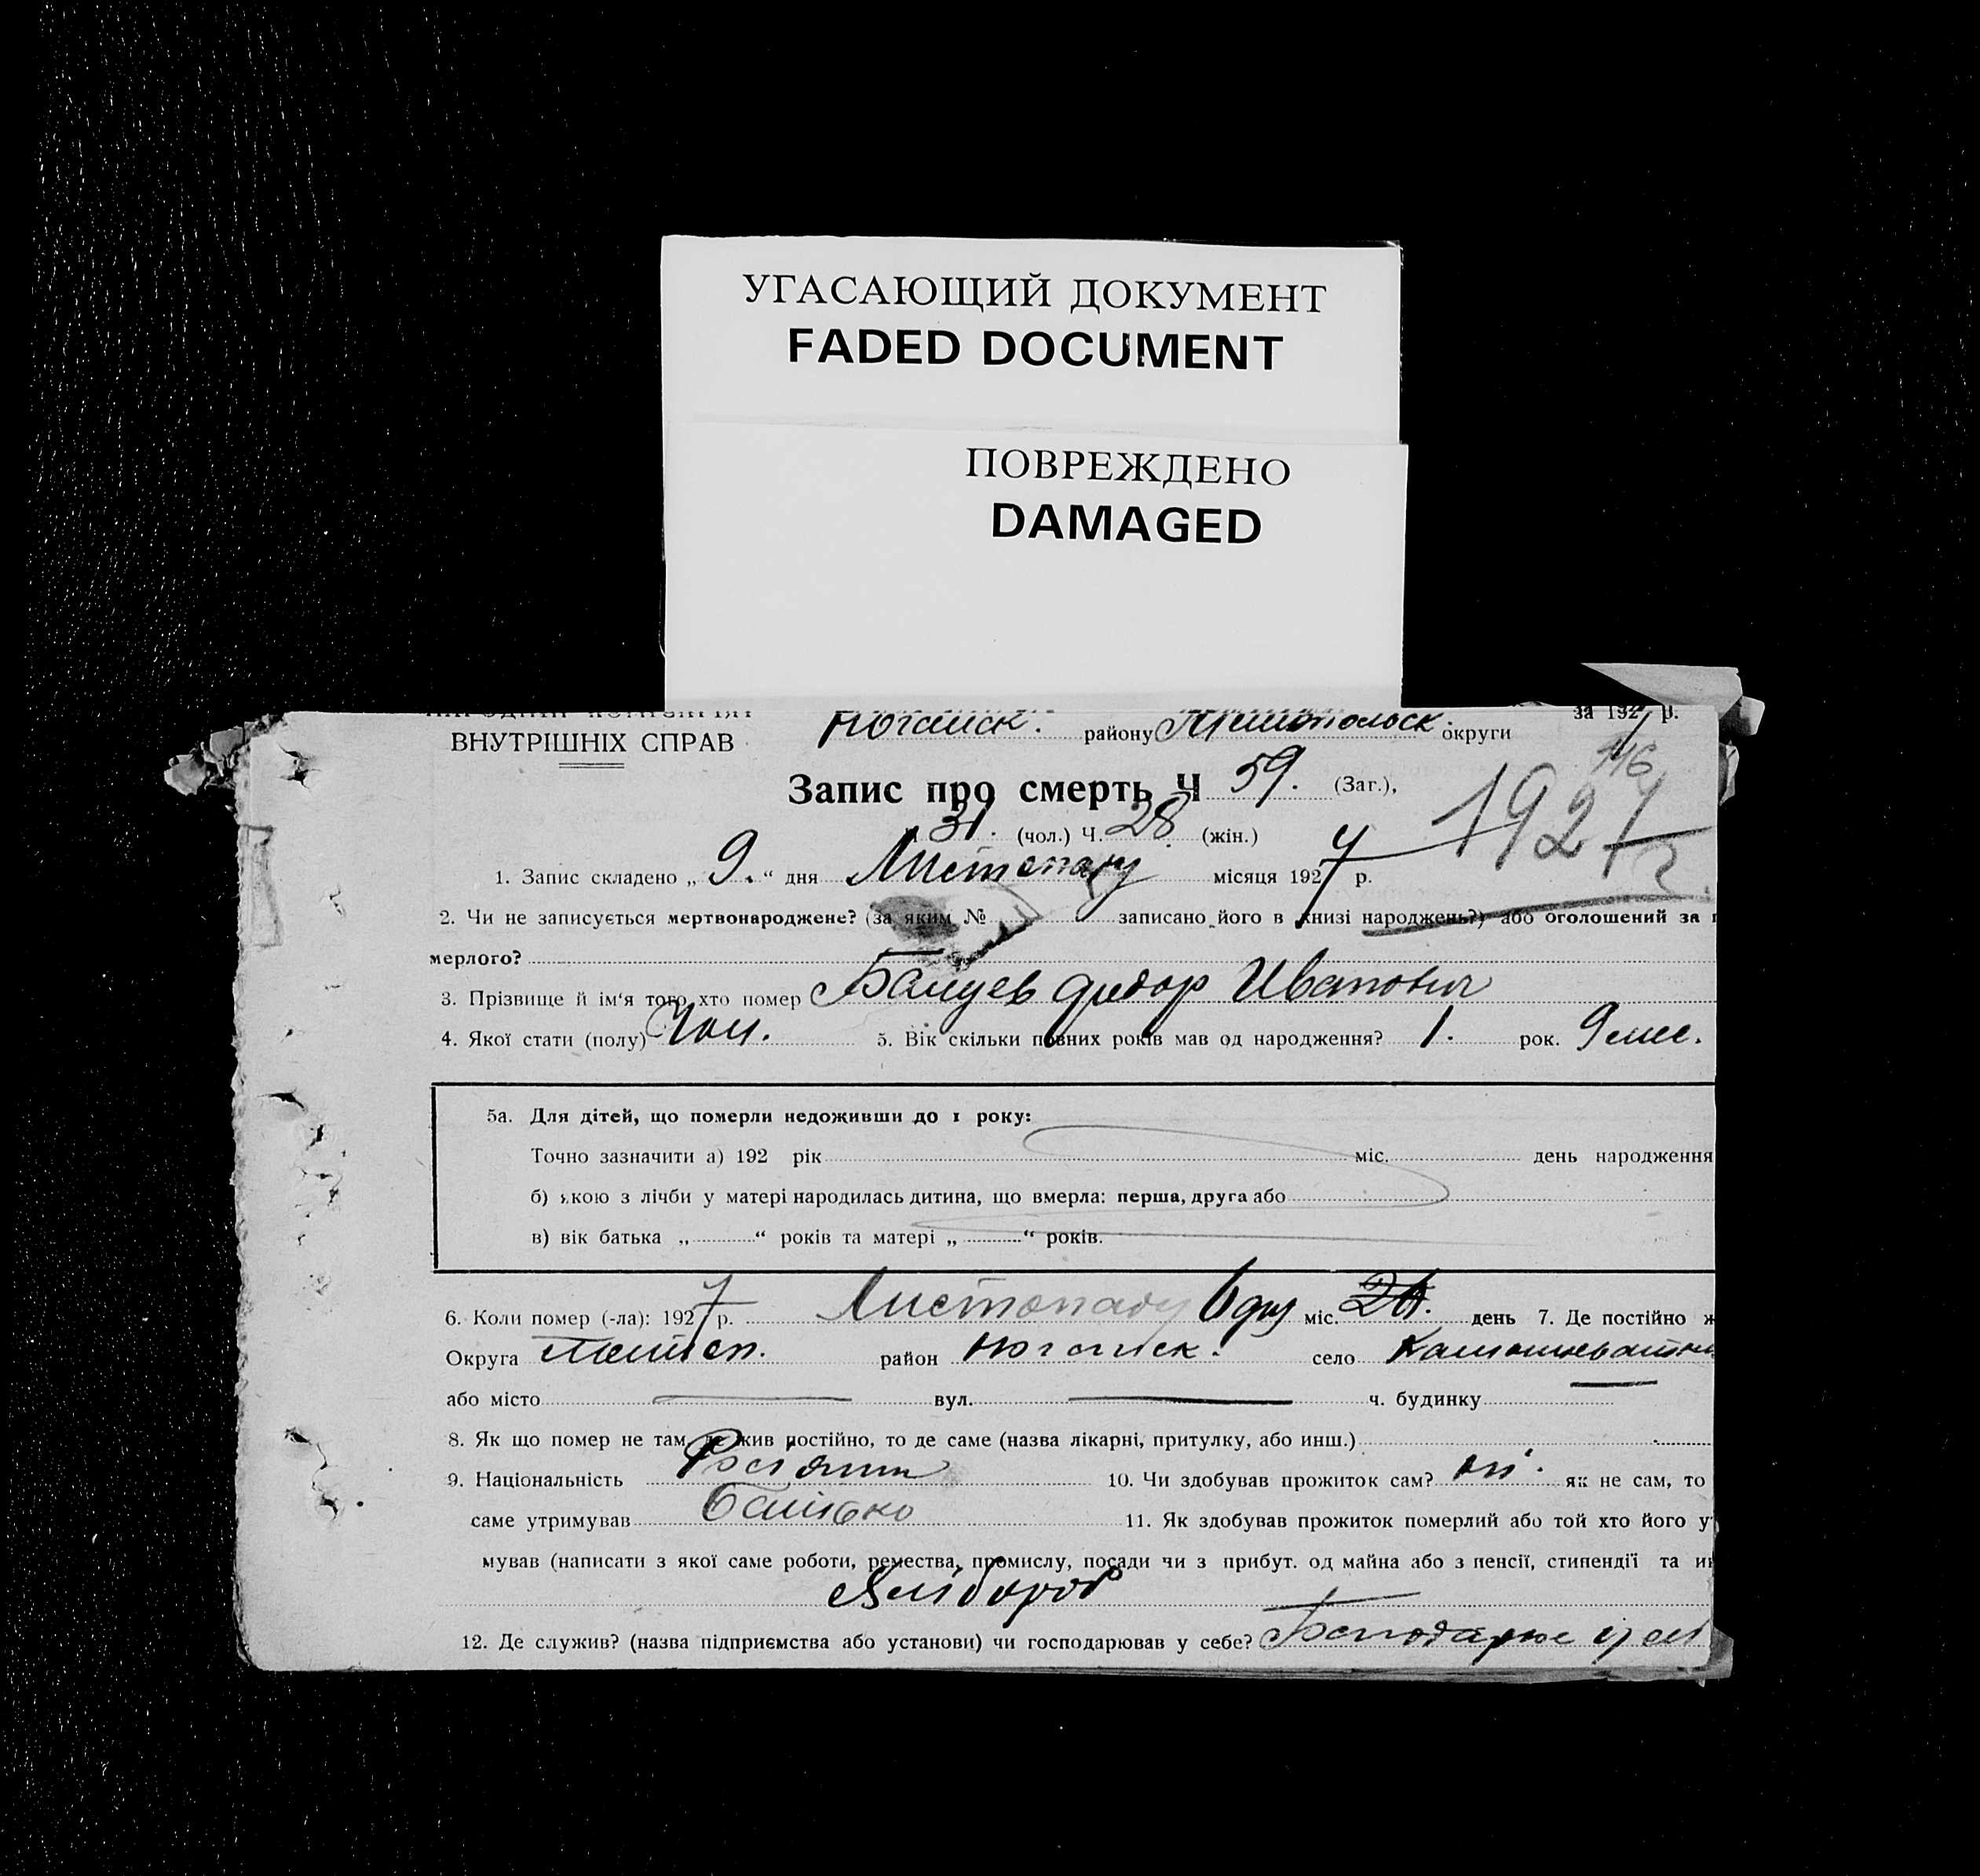 УГАСАЮЩИЙ ДОКУМЕНТ
FADED DOCUMENT
ПОВРЕЖДЕНО
DAMAGED
ВНУТРІШНІХ СПРАВ
Ногайск. району Мелитопольск. округи за 1927 р.
116
Запис про смерть Ч 59. (Заг.),
31. (чол.) Ч. 28 (жін.)
1927
1. Запис складено „ 9. “ дня Листопаду місяця 1927 р.
2. Чи не записується мертвонароджене? (за яким № записано його в книзі народжень?) або оголошений за
мерлого?
3. Прізвище й ім'я того хто помер Федор Иванович
4. Якої стати (полу) Чол. 5. Вік скільки повних років мав од народження? 1. рок. 9 мес.
5а. Для дітей, що померли недоживши до 1 року:
Точно зазначити а) 192 рік міс. день народження
б) якою з лічби у матері народилась дитина, що вмерла: перша, друга або
в) вік батька „ “ років та матері „ “ років.
6. Коли помер (-ла): 1927 р. Листопаду 6 дня міс. 26. день 7. Де постійно ж
Округа район Ногайск. село
або місто вул. ч. будинку
8. Як що помер не там, де жив постійно, то де саме (назва лікарні, притулку, або инш.)
9. Національність 10. Чи здобував прожиток сам? ні. як не сам, то
саме утримував Батько 11. Як здобував прожиток померлий або той хто його у
мував (написати з якої саме роботи, ремества, промислу, посади чи з прибут. од майна або з пенсії, стипендії та
Хлібороб
12. Де служив? (назва підприємства або установи) чи господарював у себе?